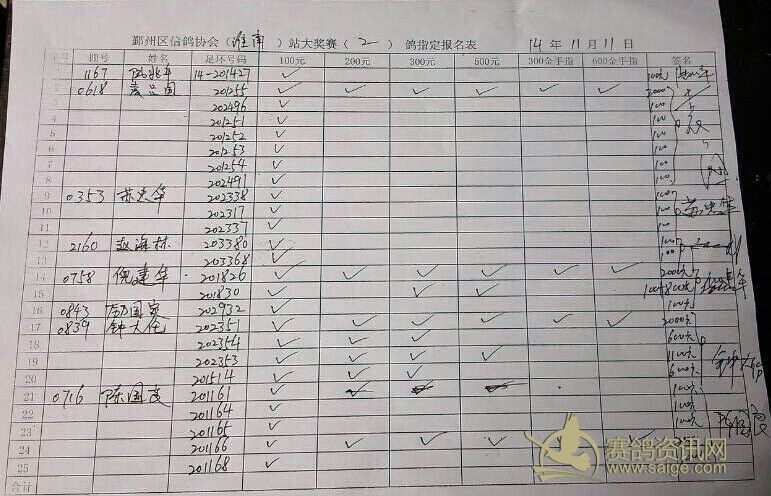 鄞州区信鸽协会（淮南）站大奖赛（2）鸽指定报名表 14年11月11日
棚号 姓名 足环号码 100元 200元 300元 500元 300全手指 600全手指 签名
1 1167 14-201427 ✓ 100元
2 0618 201255 ✓ ✓ ✓ ✓ ✓ ✓ 2000
3 202496 ✓ 100
4 201251 ✓ 100
5 201252 ✓ 100
6 201253 ✓ 100
7 201254 ✓ 100
8 202491 ✓ 100
9 0353 苏忠华 202338 ✓ 100 苏忠华
10 202317 ✓ 100
11 202337 ✓ 100
12 2160 赵海林 203380 ✓ 100
13 203368 ✓ 100
14 0758 倪建华 201826 ✓ ✓ ✓ ✓ ✓ ✓ 2000元
15 201830 ✓ ✓ ✓
16 0843 厉国家 202932 ✓ 100元
17 0839 钟大伦 202351 ✓ ✓ ✓ ✓ ✓ ✓ 2000元
18 202354 ✓ ✓ ✓ 600元
19 202353 ✓ ✓ ✓ ✓ 1100元
20 201514 ✓ ✓ ✓ 600元
21 0716 陈国良 201161 ✓ 100元
22 201164 ✓ 100元
23 201165 ✓ 100元
24 201166 ✓ ✓ ✓ ✓ ✓ ✓
25 201168 ✓
合计
赛鸽资讯网
www.saige.com